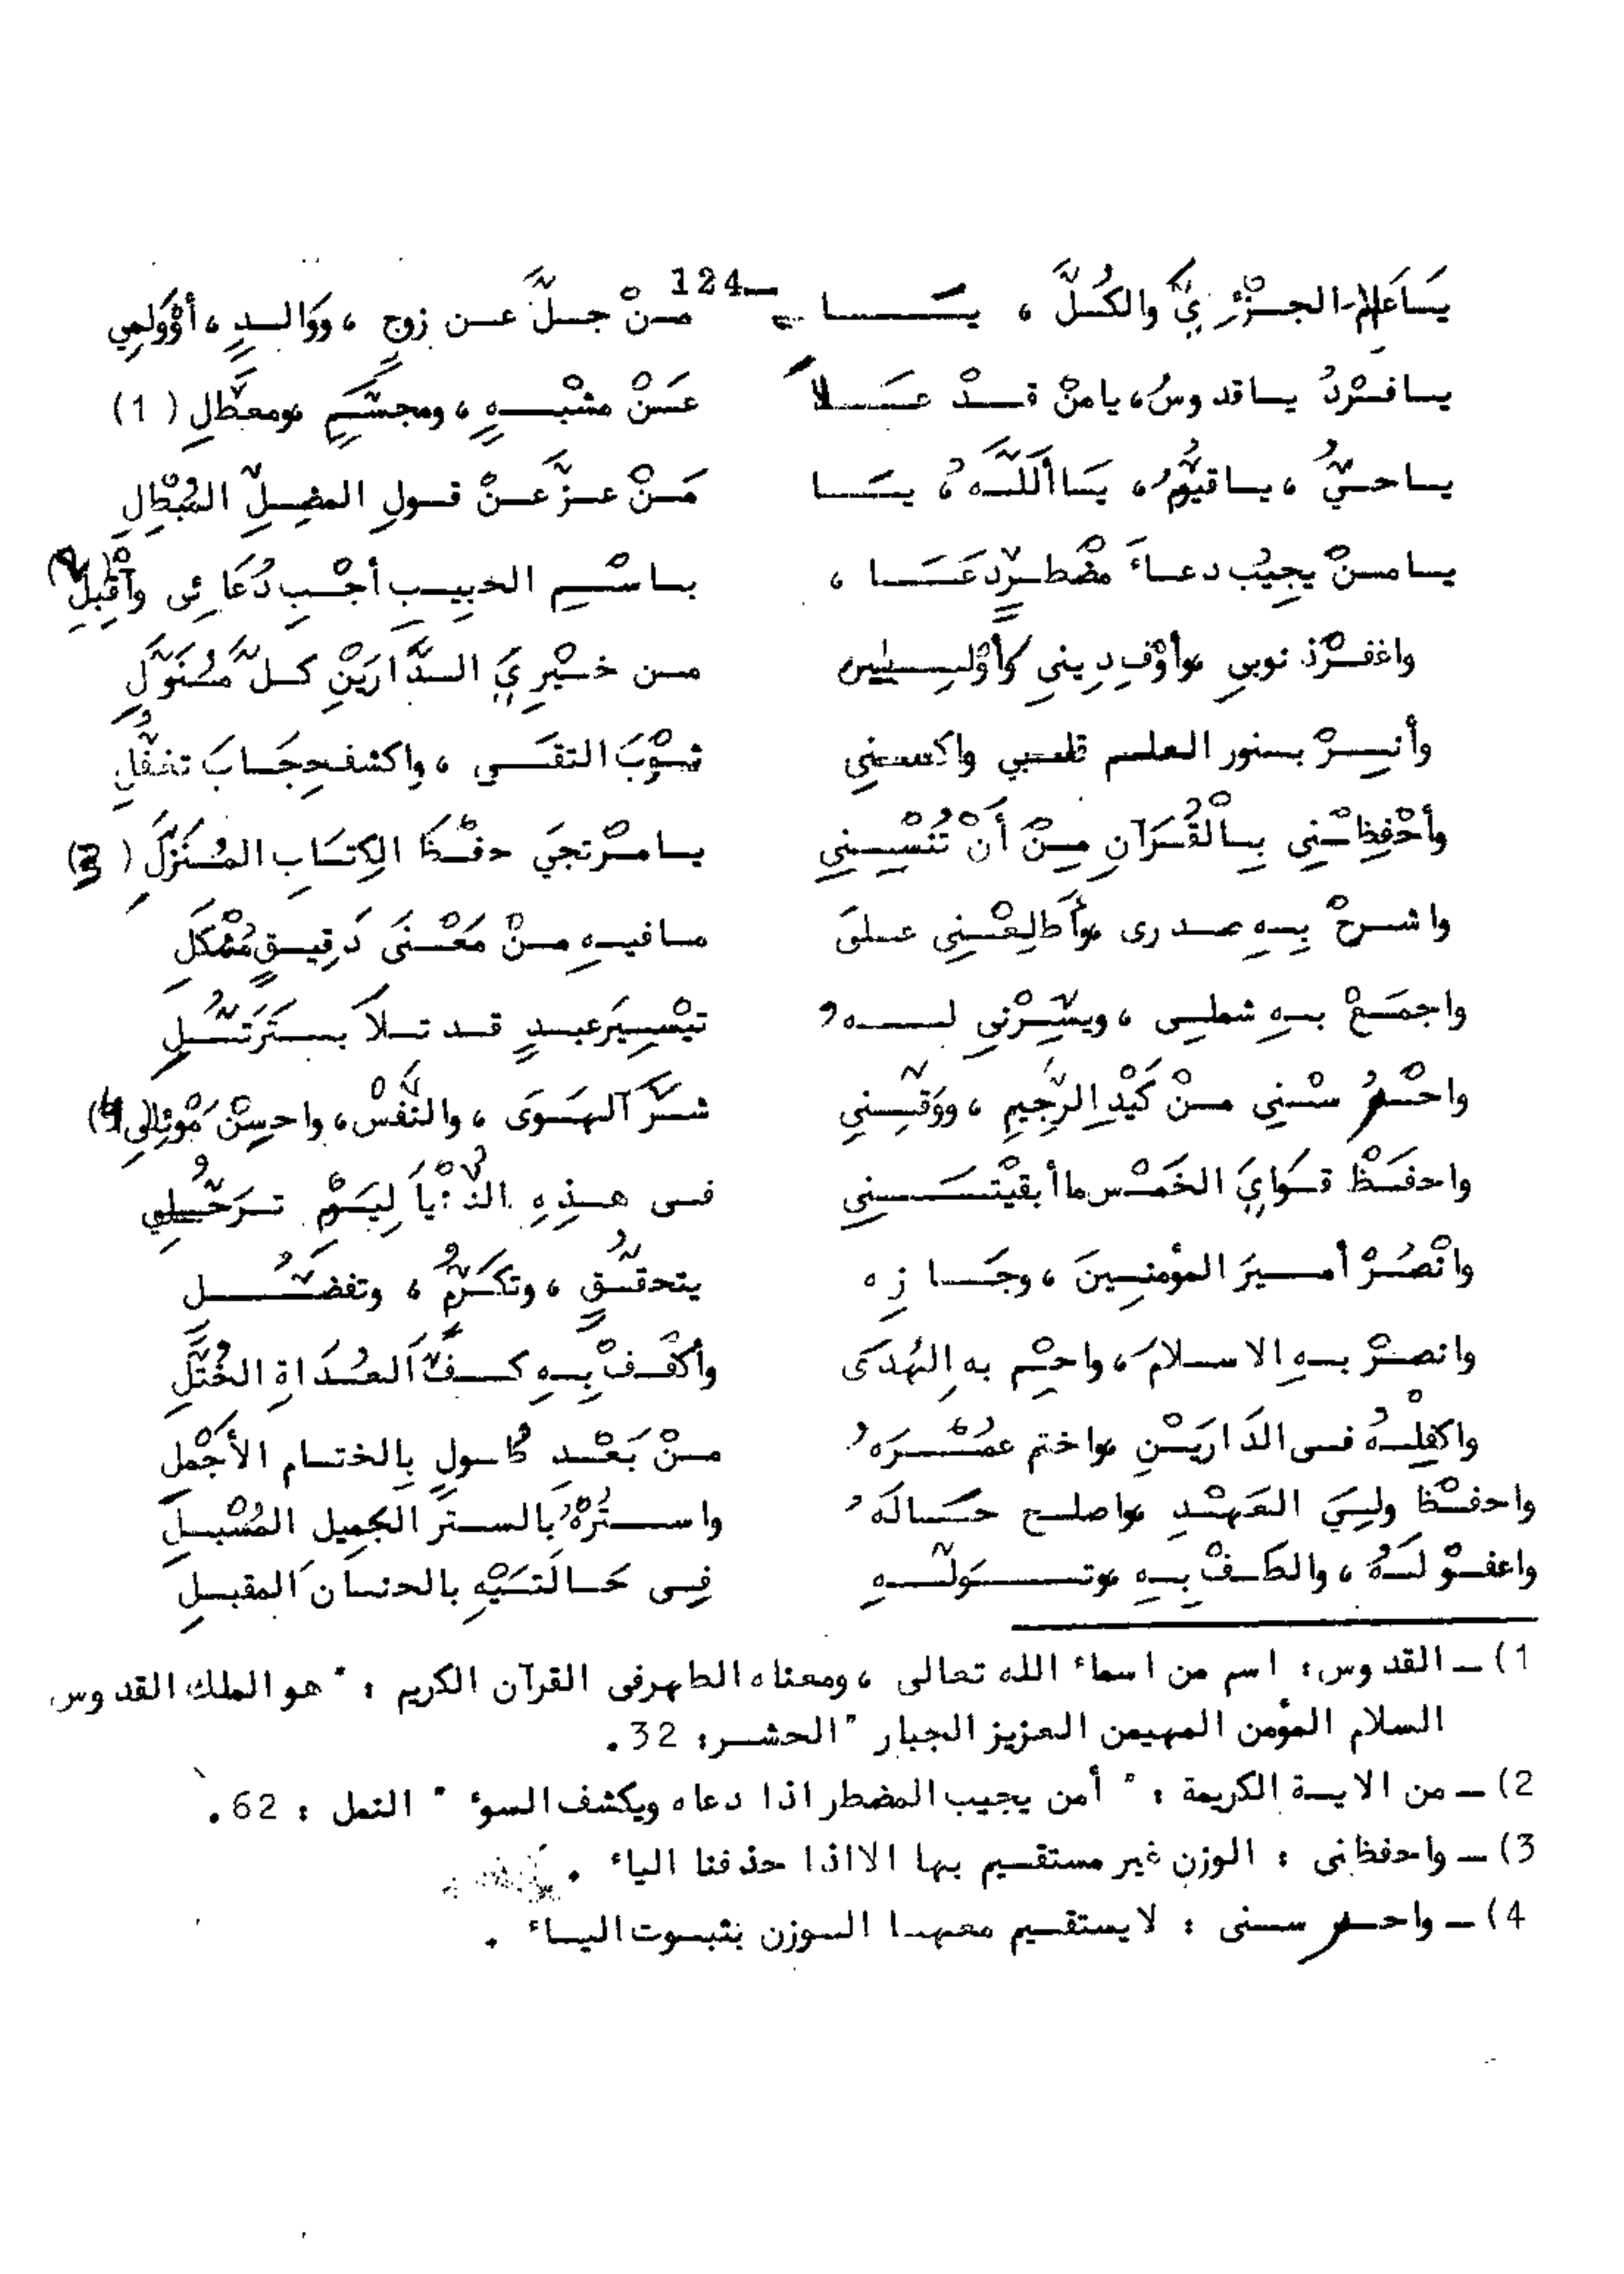 ـ124ـ
يَاعَالِمَ الجزْئِيِّ والكُلِّ ، يَا مَنْ جلَّ عن زوجٍ ، ووَالدٍ ، أوْوَلِي
يا فرْدُ يا قدوسُ، يا منْ قدْ عَلاَ عَنْ مشْبهٍ ، ومجسَّمٍ ، ومعطَّلِ (1)
يا حيُّ ، يا قيُّومُ ، يَا أَللَّهُ ، يَا مَنْ عزَّ عنْ قولِ المضِلِّ المُبْطِلِ
يا منْ يجِيبُ دعاءَ مضْطرٍّ دعَا ، باسْمِ الحبِيبِ أجْبِ دُعَائِى وأَقْبِلِ (2)
واغفرْ ذنوبي ، وأوْفِ دِيني وأوْلِني من خيْرِيَ الدَّارَيْنِ كلَّ مُنَوَّلِ
وأنِرْ بنور العلم قلبي واكسني ثوْبَ التقَى ، واكشف حِجَابَ تغفُّلِ
وأحْفِظْنِى بِالْقُرَآنِ مِنْ أَنْ تُنْسِينِي يا مرْتجَي حفْظَ الكِتَابِ المُنَزَّلِ (3)
واشرحْ بِهِ صدرى ، وأَطْلِعْنِى على ما فيهِ منْ مَعْنَى دَقِيقٍ مُشْكَلِ
واجمَعْ بهِ شملِى ، ويسِّرْنى لهُ تيْسِيرَ عبدٍ قد تلاَ بتَرَتُّلِ
واحْرُسْنِي منْ كَيْدِ الرَّجِيمِ ، ووَقِّنِي شرَّ الهَوَى ، والنَّفْسِ، واحسِنْ مَوْئِلِى (4)
واحفَظْ قوَايَ الخَمْس ما أبقيْتَنِي فى هذِهِ الدُّنْيَا لِيَوْمِ ترَحُّلِي
وانْصُرْ أميرَ المؤمنِينَ ، وجَازِه بتحقُّقٍ ، وتكَرُّمٍ ، وتفضُّلِ
وانصرْ بهِ الاسلامَ، واحْمِ به الهُدَى وأكفُفْ بِهِ كفَّ العُدَاةِ الخُتَّلِ
واكفِلْهُ فى الدَّارَيْنِ ، واختم عمْرَهُ منْ بَعْدِ طُولٍ بِالختام الأجْمَلِ
واحفظْ ولِيَ العَهْدِ ، واصلح حَالَهُ واسْتُرْهُ بالستر الجمِيل المُسْبلِ
واعفوْ لَهُ ، والطُفْ بِهِ ، وتوَلَّهِ فِى حَالَتَيْهِ بالحنان المقبلِ
1) ـ القدوس: اسم من اسماء الله تعالى ، ومعناه الطهر فى القرآن الكريم : " هو الملك القدوس
السلام المؤمن المهيمن العزيز الجبار " الحشر: 32.
2) ـ من الاية الكريمة : " أمن يجيب المضطر اذا دعاه ويكشف السوء " النمل : 62.
3) ـ واحفظانى : الوزن غير مستقيم بها الا اذا حذفنا الياء .
4) ـ واحرسنى : لا يستقيم معها الوزن بثبوت الياء .